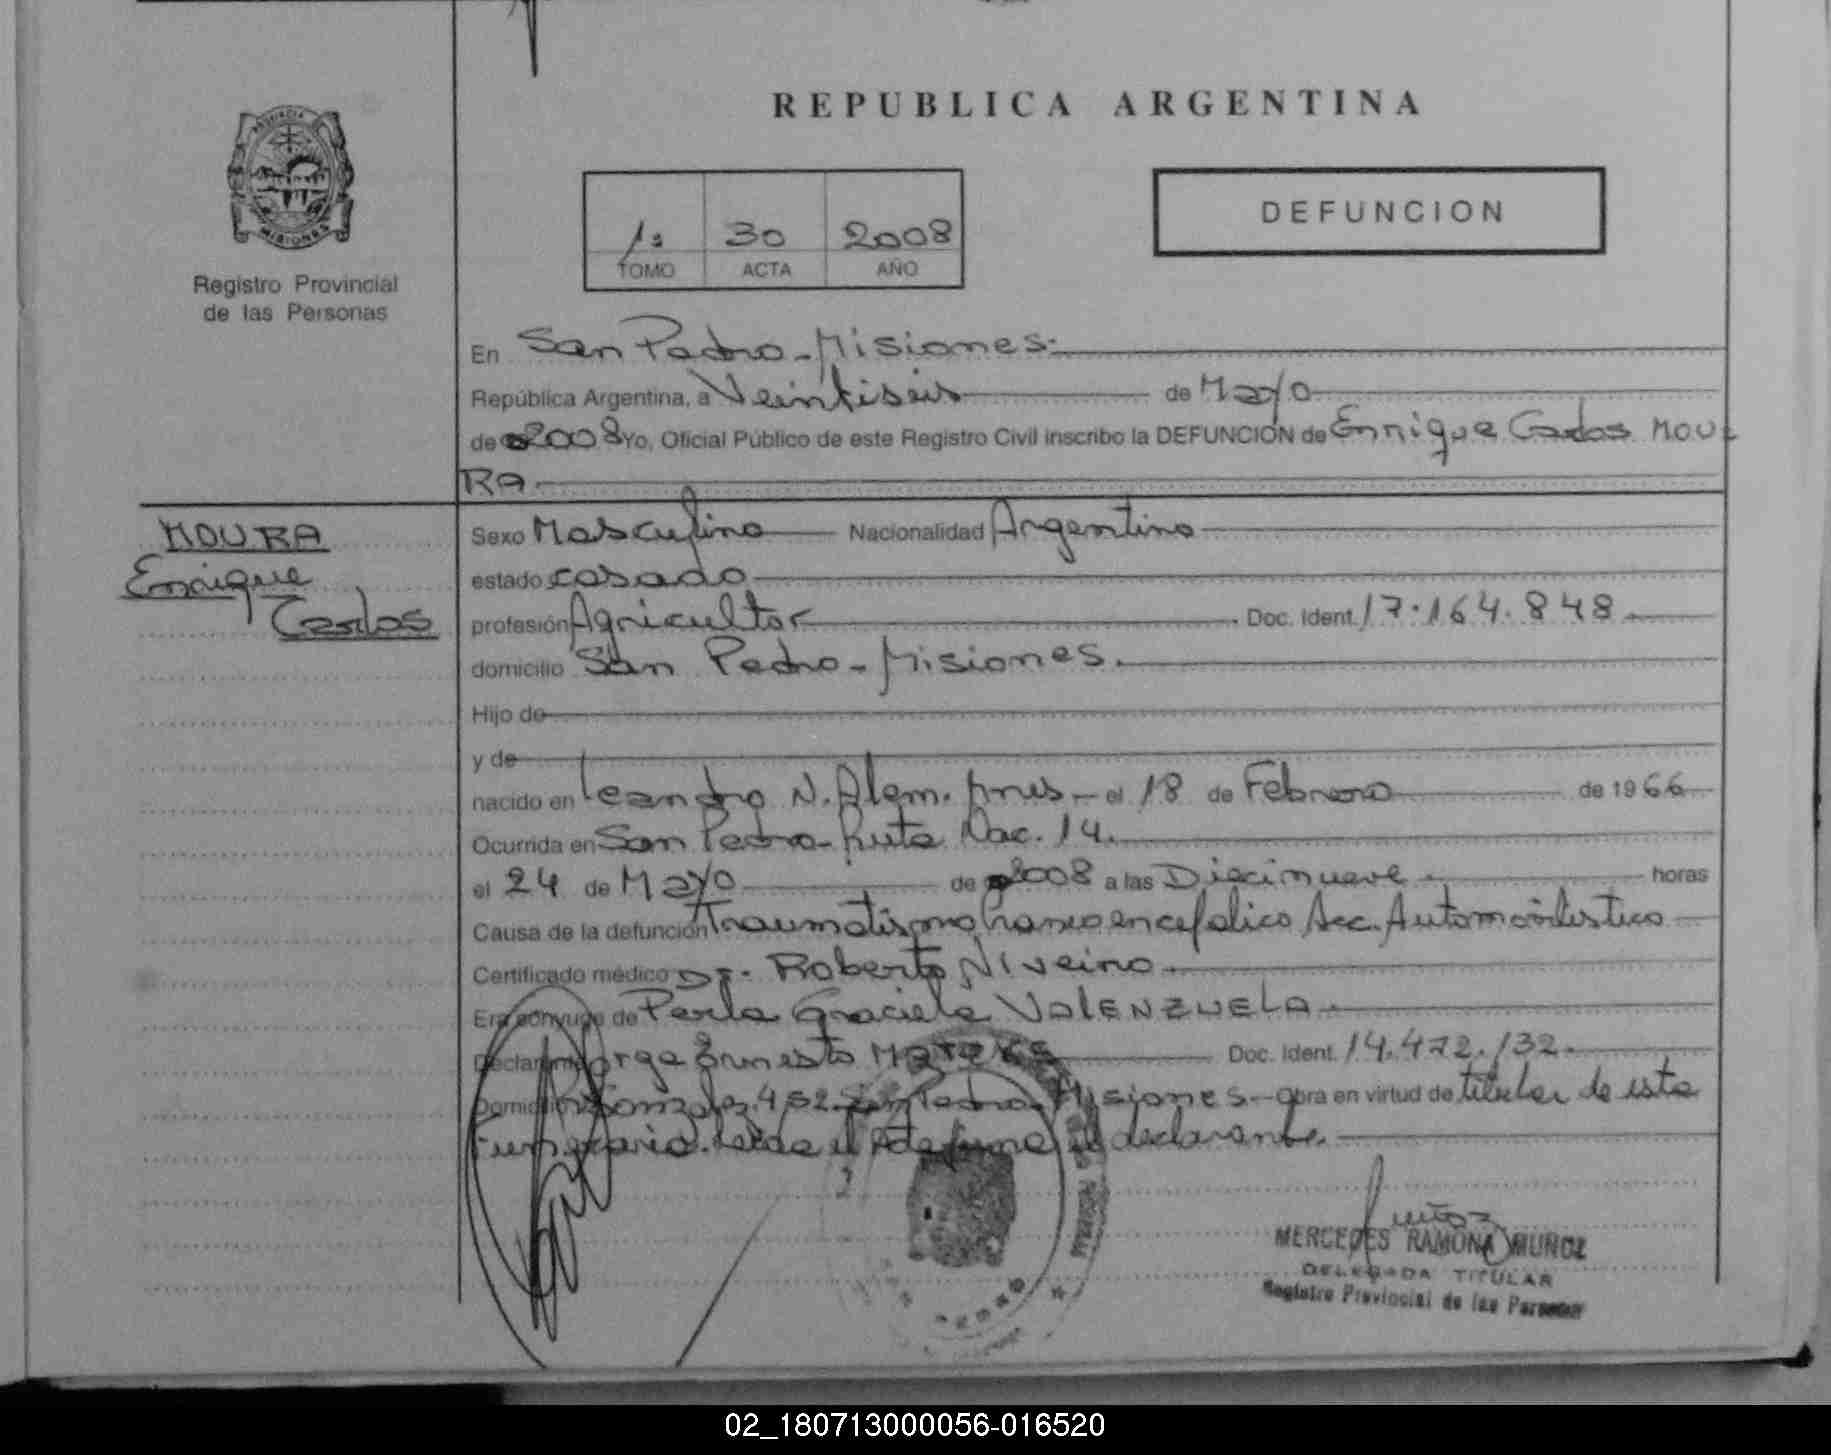 REPUBLICA ARGENTINA
PROVINCIA DE
MISIONES
Registro Provincial
de las Personas
1º 30 2008
TOMO ACTA AÑO
DEFUNCION
En San Pedro - Misiones.
República Argentina, a Veintiseis de Mayo
de 2008 Yo, Oficial Público de este Registro Civil inscribo la DEFUNCION de Enrique Carlos MOU-
RA
MOURA
Enrique
Carlos
Sexo Masculino Nacionalidad Argentino
estado casado
profesión Agricultor Doc. Ident. 17.164.848
domicilio San Pedro - Misiones.
Hijo de
y de
nacido en Leandro N. Alem. Mnes - el 18 de Febrero de 1966
Ocurrida en San Pedro - Ruta Nac. 14.
el 24 de Mayo de 2008 a las Diecinueve horas
Causa de la defunción Traumatismo Craneoencefalico Acc. Automovilistico
Certificado médico Dr. Roberto Niveiro
Era conyuge de Perla Graciela VALENZUELA
Declarante Jorge Ernesto Doc. Ident. 14.472.132
Domicilio Gonzalez 452 San Pedro - Misiones - obra en virtud de titular de esta
Funeraria. Leida el Acta firma el declarante.
MERCEDES RAMONA MUÑOZ
DELEGADA TITULAR
Registro Provincial de las Personas
02_180713000056-016520